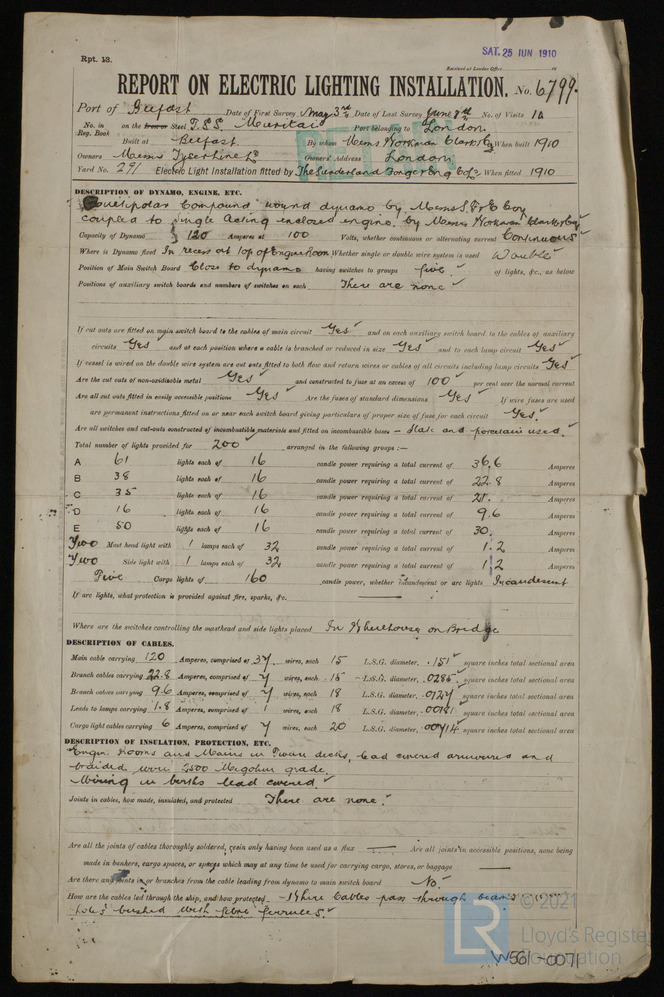 SAT. 25 JUN 1910
Rpt. 13.
Received at London Office
REPORT ON ELECTRIC LIGHTING INSTALLATION. No. 6799.
Port of Belfast Date of First Survey May 3rd Date of Last Survey June 8th No. of Visits 10
No. in Reg. Book on the Iron or Steel T.S.S. Port belonging to London.
Built at Belfast By whom Messrs Workman Clark & Co When built 1910
Owners Messrs Tyser Line Ld Owners' Address London
Yard No. 291 Electric Light Installation fitted by The Sunderland Forge & Eng Co Ld When fitted 1910
DESCRIPTION OF DYNAMO, ENGINE, ETC.
Compound wound dynamo by Messrs
coupled to single acting enclosed engine by Messrs Workman Clark & Co
Capacity of Dynamo 120 Amperes at 100 Volts, whether continuous or alternating current Continuous
Where is Dynamo fixed In recess at top of Engine Room Whether single or double wire system is used Double
Position of Main Switch Board Close to dynamo having switches to groups five of lights, &c., as below
Positions of auxiliary switch boards and numbers of switches on each There are none
If cut outs are fitted on main switch board to the cables of main circuit Yes and on each auxiliary switch board to the cables of auxiliary
circuits Yes and at each position where a cable is branched or reduced in size Yes and to each lamp circuit Yes
If vessel is wired on the double wire system are cut outs fitted to both flow and return wires or cables of all circuits including lamp circuits Yes
Are the cut outs of non-oxidizable metal Yes and constructed to fuse at an excess of 100 per cent over the normal current
Are all cut outs fitted in easily accessible positions Yes Are the fuses of standard dimensions Yes If wire fuses are used
are permanent instructions fitted on or near each switch board giving particulars of proper size of fuse for each circuit Yes.
Are all switches and cut-outs constructed of incombustible materials and fitted on incombustible bases - Slate and porcelain used.
Total number of lights provided for 200 arranged in the following groups :—
A 61 lights each of 16 candle power requiring a total current of 36.6 Amperes
B 38 lights each of 16 candle power requiring a total current of 22.8 Amperes
C 35 lights each of 16 candle power requiring a total current of 21. Amperes
D 16 lights each of 16 candle power requiring a total current of 9.6 Amperes
E 50 lights each of 16 candle power requiring a total current of 30. Amperes
Two Mast head light with 1 lamps each of 32 candle power requiring a total current of 1.2 Amperes
Two Side light with 1 lamps each of 32 candle power requiring a total current of 1.2 Amperes
Five Cargo lights of 160 candle power, whether incandescent or arc lights Incandescent
If arc lights, what protection is provided against fire, sparks, &c. —
Where are the switches controlling the masthead and side lights placed In Wheelhouse on Bridge
DESCRIPTION OF CABLES.
Main cable carrying 120 Amperes, comprised of 37 wires, each 15 L.S.G. diameter, .151 square inches total sectional area
Branch cables carrying 22.8 Amperes, comprised of 7 wires, each 15 L.S.G. diameter, .0285 square inches total sectional area
Branch cables carrying 9.6 Amperes, comprised of 7 wires, each 18 L.S.G. diameter, .0127 square inches total sectional area
Leads to lamps carrying 1.8 Amperes, comprised of 1 wires, each 18 L.S.G. diameter, .00181 square inches total sectional area
Cargo light cables carrying 6 Amperes, comprised of 7 wires, each 20 L.S.G. diameter, .00714 square inches total sectional area
DESCRIPTION OF INSULATION, PROTECTION, ETC.
Engine Rooms and Mains in Tween decks, lead covered armoured and
braided wire 2500 Megohm grade.
Wiring in berths lead covered.
Joints in cables, how made, insulated, and protected There are none.
Are all the joints of cables thoroughly soldered, resin only having been used as a flux — Are all joints in accessible positions, none being
made in bunkers, cargo spaces, or spaces which may at any time be used for carrying cargo, stores, or baggage —
Are there any joints in or branches from the cable leading from dynamo to main switch board No.
How are the cables led through the ship, and how protected - Where Cables pass through beams
holes bushed with fibre ferrules.
© 2021
LR
Lloyd's Register
Foundation
W561-0071